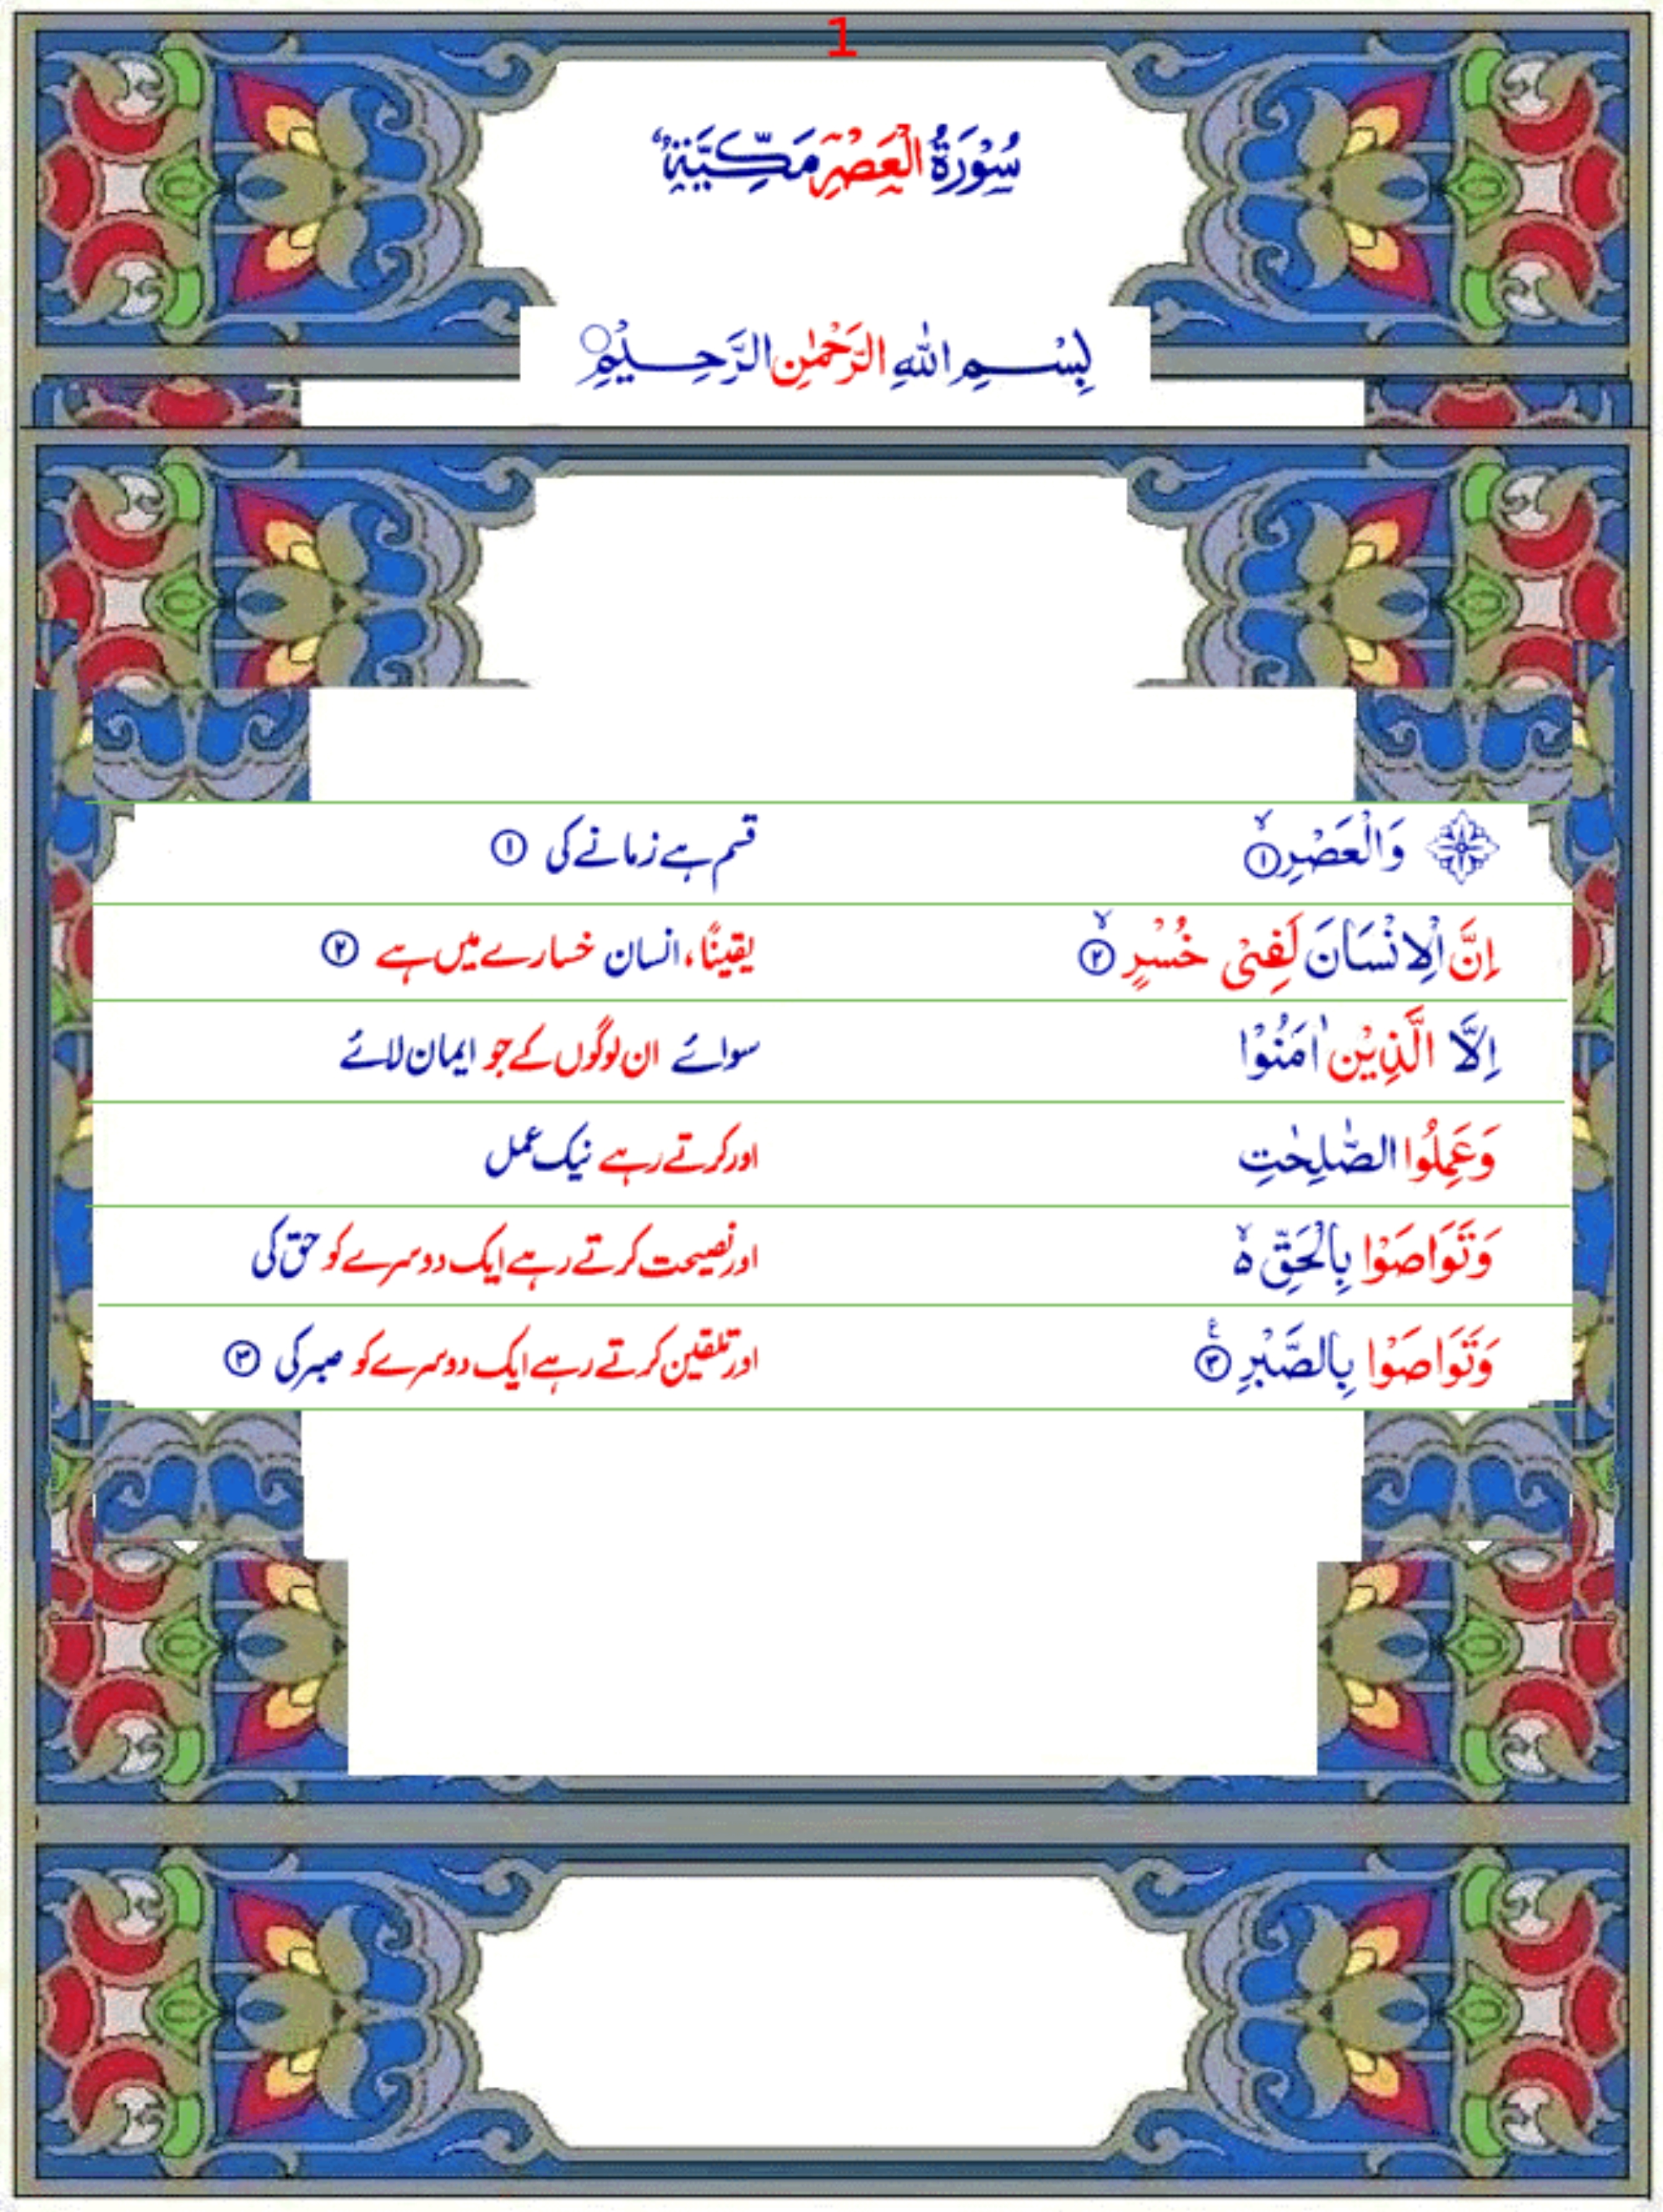 1
سُوْرَةُ الْعَصْرِ مَكِّیَّةٌ
بِسْمِ اللّٰهِ الرَّحْمٰنِ الرَّحِیْمِ
وَالْعَصْرِ ۙ‏﴿۱﴾ قسم ہے زمانے کی ﴿۱﴾
اِنَّ الْاِنْسَانَ لَفِیْ خُسْرٍ ۙ‏﴿۲﴾ یقیناً، انسان خسارے میں ہے ﴿۲﴾
اِلَّا الَّذِیْنَ اٰمَنُوْا سوائے ان لوگوں کے جو ایمان لائے
وَعَمِلُوا الصّٰلِحٰتِ اور کرتے رہے نیک عمل
وَتَوَاصَوْا بِالْحَقِّ ۙ۬ اور نصیحت کرتے رہے ایک دوسرے کو حق کی
وَتَوَاصَوْا بِالصَّبْرِ ﴿۳﴾ اور تلقین کرتے رہے ایک دوسرے کو صبر کی ﴿۳﴾